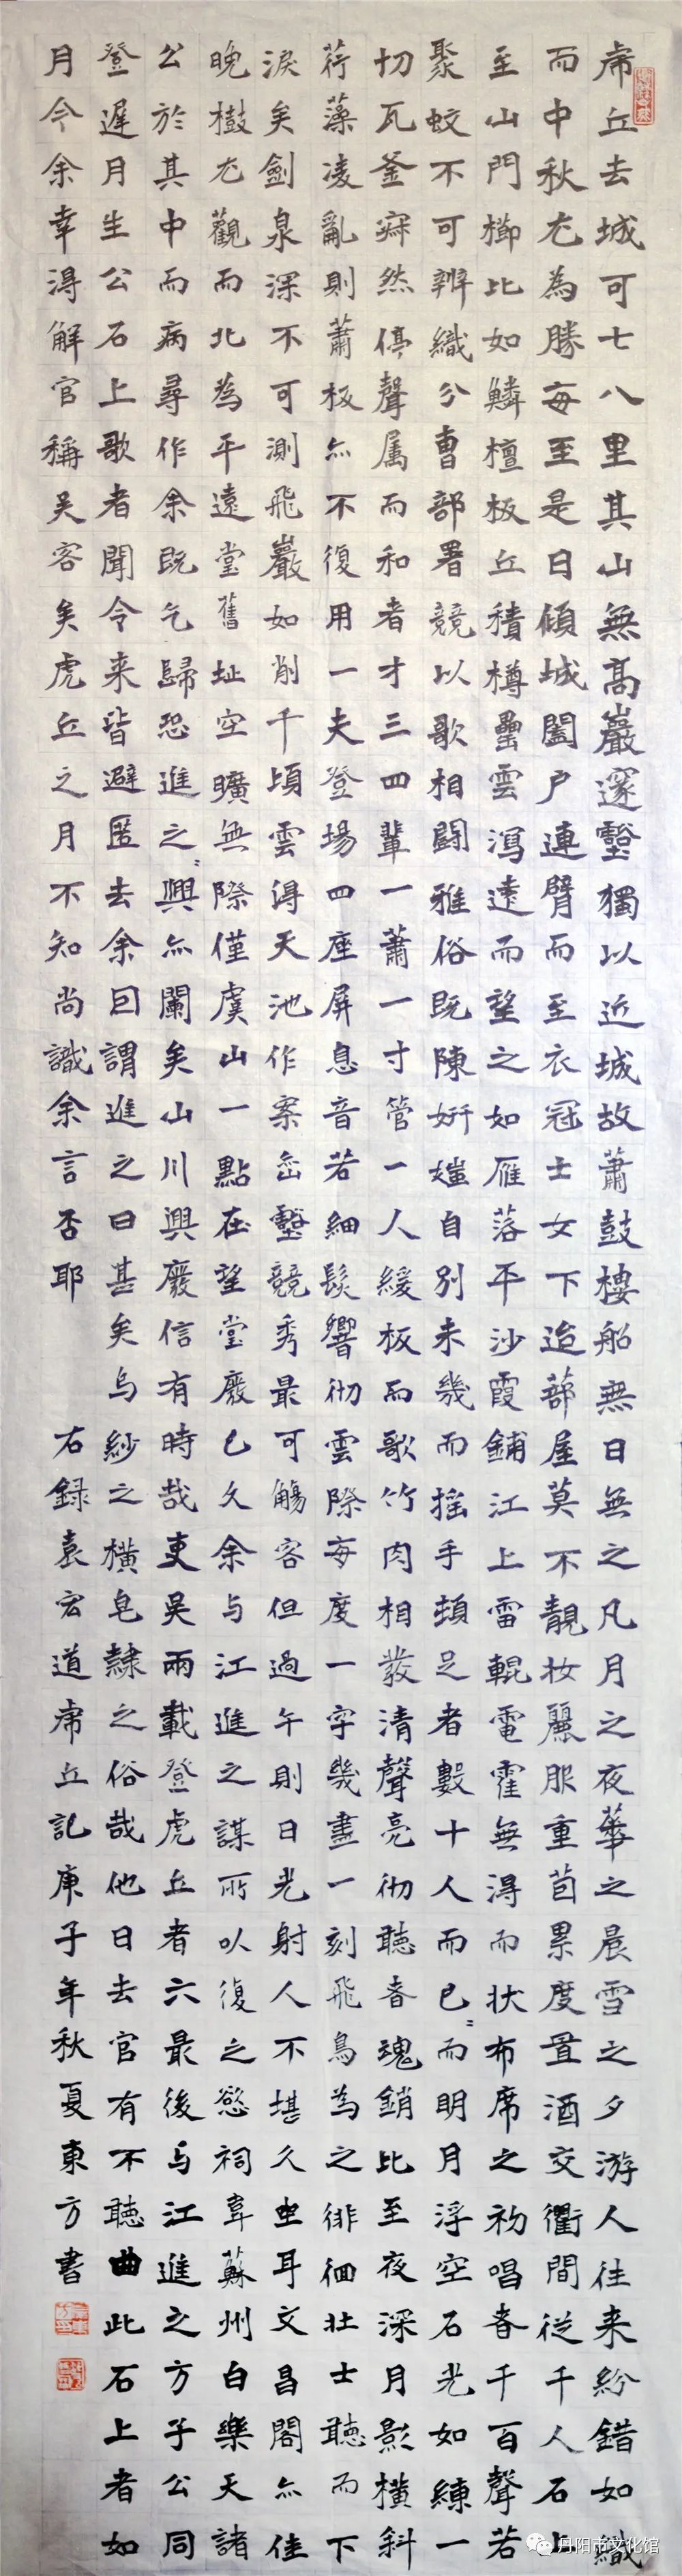 虎丘去城可七八里其山無高巖邃壑獨以近城故蕭鼓樓船無日無之凡月之夜華之晨雪之夕游人往来紛錯如織
而中秋尤為勝每至是日傾城闔户連臂而至衣冠士女下迨蔀屋莫不靚妝麗服重茵累度置酒交衢間從千人石上
至山門櫛比如鱗檀板丘積樽罍雲瀉遠而望之如雁落平沙霞鋪江上雷輥電霍無得而状布席之初唱者千百聲若
聚蚊不可辨織分曹部署競以歌相鬪雅俗既陳妍媸自别未幾而摇手頓足者數十人而已〃而明月浮空石光如練一
切瓦釜寂然停聲属而和者才三四輩一蕭一寸管一人緩板而歌竹肉相發清聲亮彻聽者魂銷比至夜深月影横斜
荇藻凌亂則蕭板亦不復用一夫登場四座屏息音若細髮響彻雲際每度一字幾盡一刻飛鳥為之徘徊壮士聽而下
淚矣劍泉深不可測飛巖如削千頃雲得天池作案巒壑競秀最可觴客但過午則日光射人不堪久坐耳文昌閣亦佳
晚樹尤觀而北為平遠堂舊址空曠無際僅虞山一點在望堂廢已久余与江進之謀所以復之慾祠韋蘇州白樂天諸
公於其中而病尋作余既乞歸恐進之〃興亦闌矣山川興廢信有時哉吏吴兩載登虎丘者六最後与江進之方子公同
登遲月生公石上歌者聞令来皆避匿去余回謂進之曰甚矣乌紗之横皂隸之俗哉他日去官有不聽曲此石上者如
月今余幸得解官稱吴客矣虎丘之月不知尚識余言否耶 右録袁宏道虎丘記庚子年秋夏東方書
丹阳市文化馆